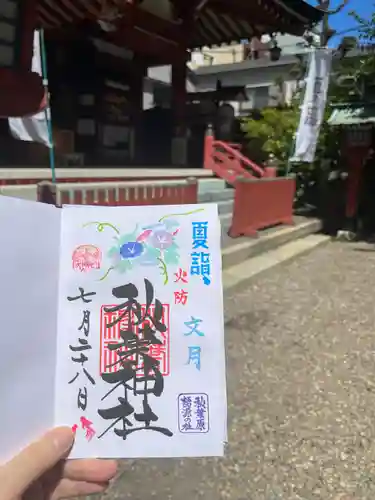 夏詣
火防
文月
秋葉神社
七月二十八日
秋葉原
語源の社